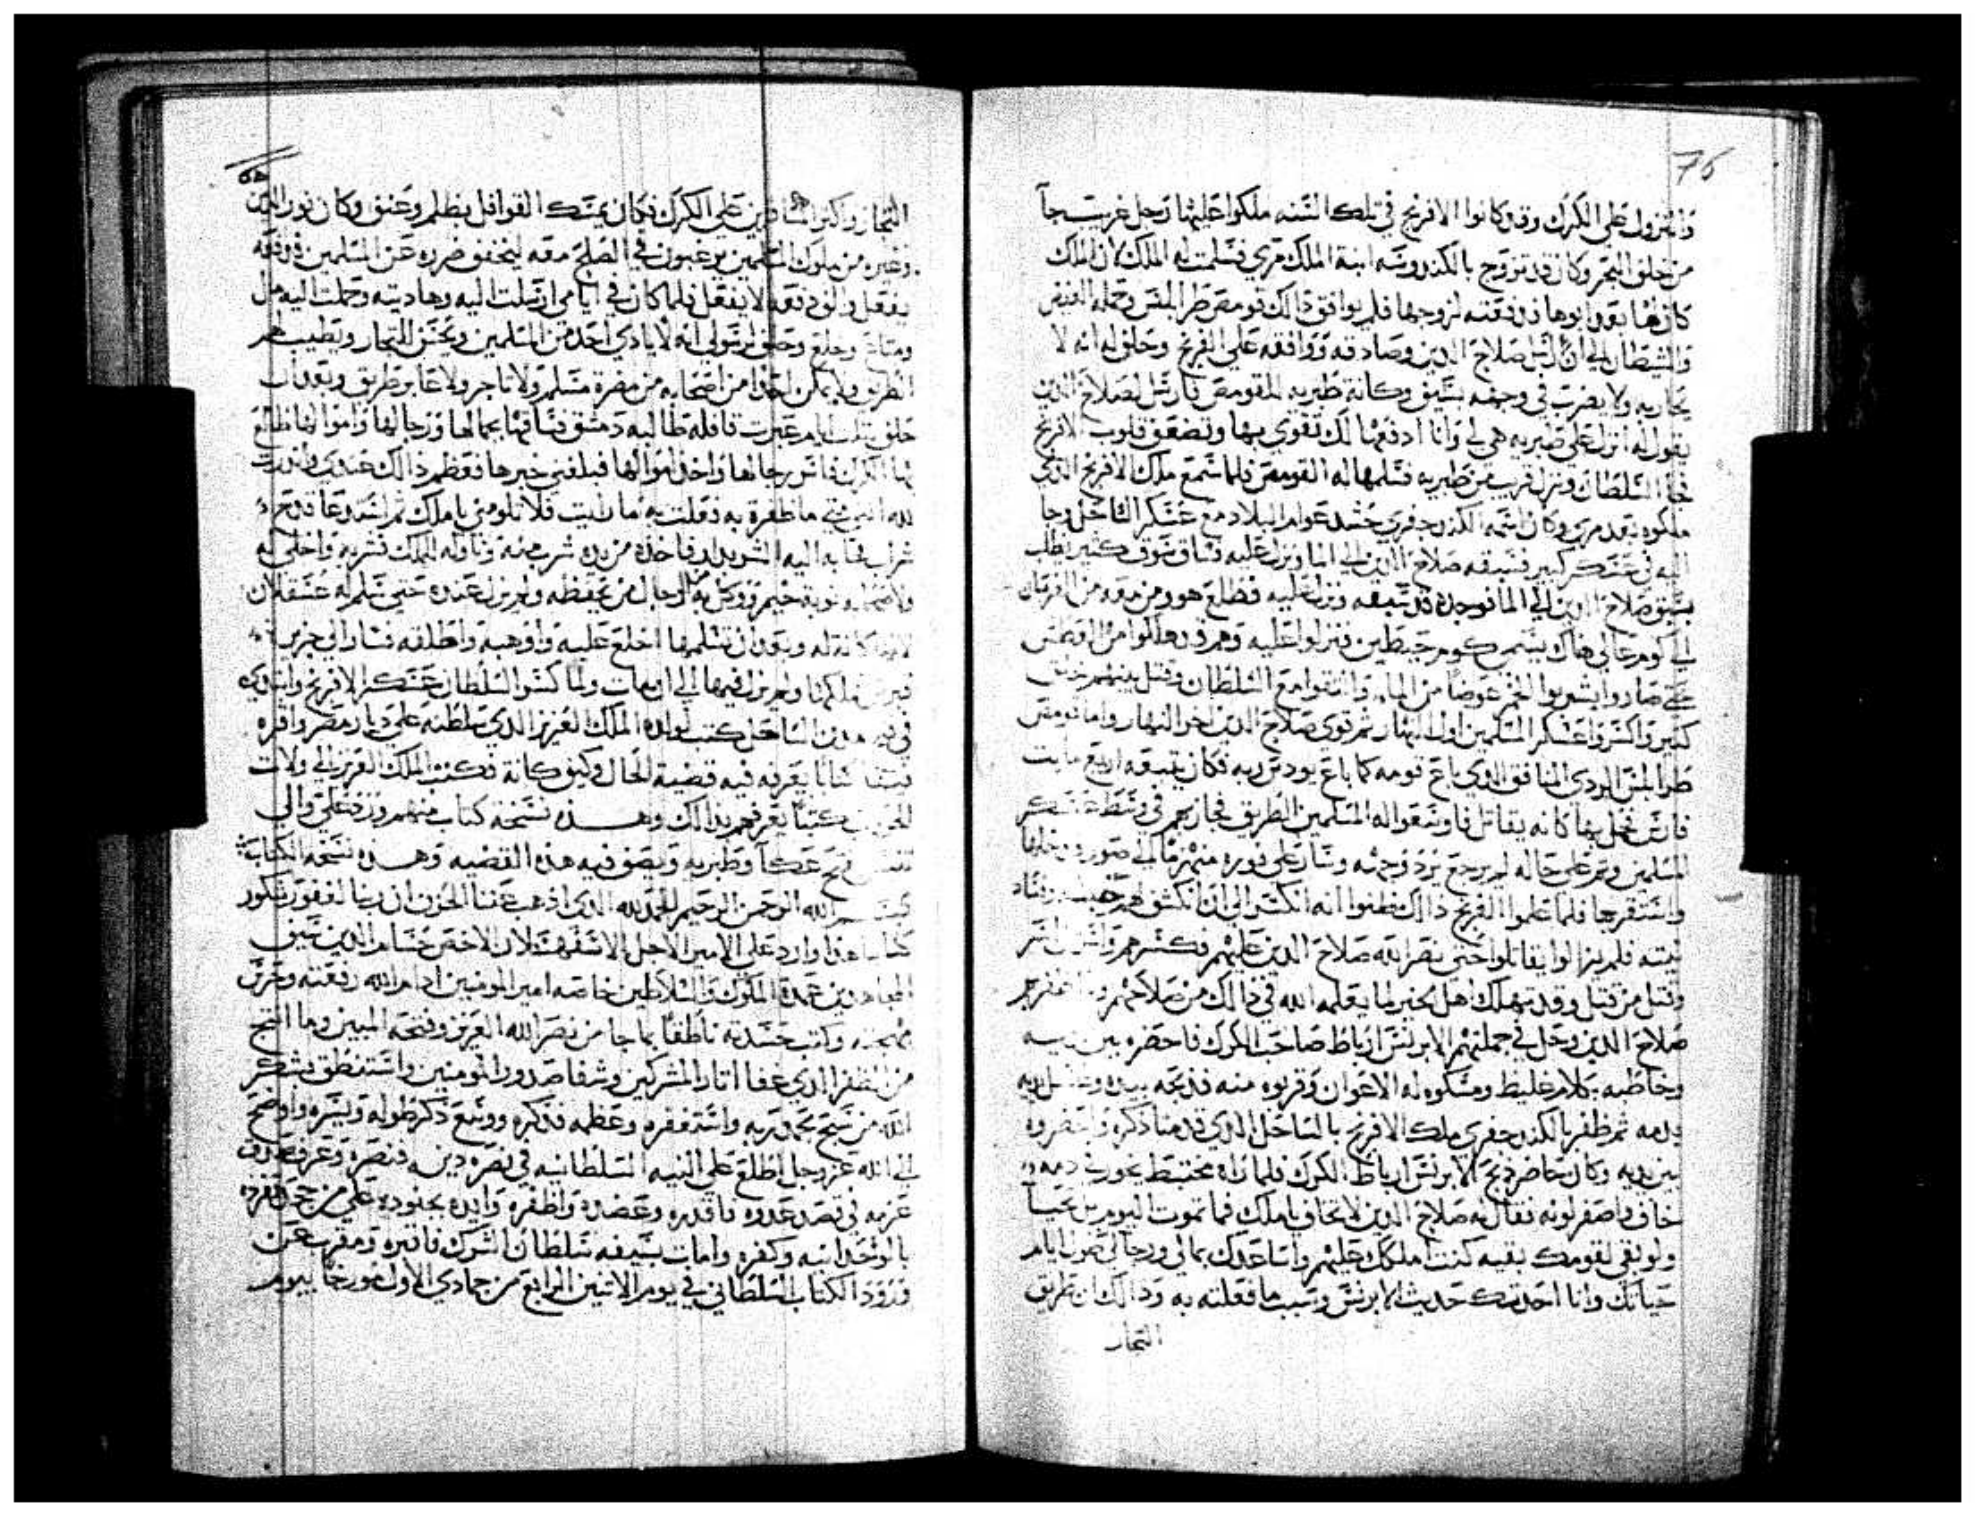 76
والنزول علي الكرك وقد كانوا الافرنج في تلك السنه ملكوا عليها رجل غريب جآ
من خلف البحر وكان قد تزوج بالكندروسه ابنة الملك مري فسلمت له الملك لان الملك
كان لها بعد ابوها فدفعته لزوجها فلم يوافق ذالك قومص طرابلس وحمله البغض
والشيطان الي ان راسل صلاح الدين وصادقه ووافقه علي الفرنج وحلف له انه لا
يحاربه ولا يضرب في وجهه بسيف وكانة طبريه للقومص فارسل لصلاح الدين
يقول له انزل علي طبريه هي لي وانا ادفعها لك تقوي بها وتضعف قلوب الافرنج
فجا السلطان ونزل قريب من طبريه فسلمها له القومص فلما سمع ملك الافرنج الذي
ملكوه بعد مري وكان اسمه الكندجفري حشد عوام البلاد مع عسكر الساحل وجا
اليه في عسكر كبير فسبقه صلاح الدين الي الما ونزل عليه وساق سوق كثير يطلب
يسبق صلاح الدين الي الما فوجده قد سبقه ونزل عليه فطلع هو ومن معه من الفرسان
الي كوم عالي هناك يسمي كوم حيطين فنزلوا عليه وهم قد هلكوا من العطش
حتي صاروا يشربوا الخمر عوضا من الماء والتقوا مع السلطان وقتل بينهم خلق
كثير وانكسروا عسكر المسلمين اول النهار ثم قوي صلاح الدين اخر النهار واما قومص
طرابلس الردي المنافق الذي باع قومه كما باع يودس ربه فكان تبعه اربع مايت
فارس فحمل بها كانه يقاتل فاوسعوا له المسلمين الطريق فجاز بهم في وسط عسكر
المسلمين ومر علي حاله لم يرجع يرد وجهه وسار علي فوره منهزما الي صور ودخلها
واستقر بها فلما علموا الفرنج ذالك ظنوا انه انكسر الي ان انكشف لهم خبث وفساد
نيته فلم يزالوا يقاتلوا حتي نصر الله صلاح الدين عليهم فكسرهم واسر من اسر
وقتل من قتل وقد تهلك اهل الخير لما يعلمه الله في ذالك من صلاحهم
صلاح الدين رحل في جملتهم الابرنس ارباط صاحب الكرك فاحضره بين يديه
وخاطبه بكلام غليظ ومسكوه له الاعوان وقربوه منه فذبحه بيده وغسل يديه
بدمه ثم ظفر بالكندجفري ملك الافرنج بالساحل الذي قدمنا ذكره واحضروه
بين يديه وكان حاضر ذبح الابرنس ارباط الكرك فلما راه مختبط يخور في دمه
خاف واصفر لونه فقال له صلاح الدين لا تخاف يا ملك فما تموت اليوم بل تحيآ
ولو بقي لقومك بقيه كنت املكك عليهم واساعدك بمالي ورجالي طول ايام
حياتك وانا احدثك حديث الابرنس وسبب ما فعلته به وذالك ان طريق
التجار
التجار واكثر المسافرين علي الكرك فكان يمسك القوافل بظلم وعنف وكان نور الدين
وغيره من ملوك المسلمين يرغبون في الصلح معه ليخفف ضرره عن المسلمين فدفعه
يفعل والف دفعه لا يفعل فلما كان في ايامي ارسلت اليه وهاديته وحملت اليه مال
ومتاع وخلع وحلف لرسولي انه لا ياذي احد من المسلمين ويحسن للتجار ويطيب لهم
الطريق ولا يمكن احدا من اصحابه من مضرة مسلم ولا تاجر ولا عابر طريق وبعد ان
حلف بثلث ايام عبرت قافله طالبه دمشق فساقها بجمالها ورجالها واموالها طالع
بها الكرك فاسر رجالها واخذ اموالها فبلغني خبرها فعظم ذالك عندي ونذرت
لله انني متي ما ظفرة به فعلت به ما رايت فلا تلومني يا ملك ثم استدعا قدح
شراب فجابه اليه الشربدار فاخذه من يده شرب منه وناوله للملك فشربه واخلي له
ولاصحابه نوبة خيم ووكل به الرجال من يحفظه ولم يزل عنده حتي سلم له عسقلان
لانها كانة له وبعد ان تسلمها اخلع عليه واوهبه واطلقه فسار الي جزيرة
قبرس فملكها ولم يزل فيها الي ان مات ولما كسر السلطان عسكر الافرنج وابتدي
في فتح مدن الساحل كتب لولده الملك العزيز الذي سلطنه علي ديار مصر واقره
فيها كتابا يعرفه فيه قضية الحال وكيف كانة فكتب الملك العزيز الي ولات
الحرب كتبا يعرفهم بذالك وهذه نسخة كتاب منهم ورد علي والي
فتح عكا وطبريه ويصف فيه هذه القضيه وهذه نسخة الكتاب
بسم الله الرحمن الرحيم الحمد لله الذي اذهب عنا الحزن ان ربنا لغفور شكور
كتابنا هذا وارد علي الامير الاجل الاسفهسلار الاخص حسام الدين سيف
المجاهدين عمدة الملوك والسلاطين خاصة امير المومنين ادام الله رفعته وحرس
مهجته وكبت حسدته ناطقا بما جا من نصر الله العزيز وفتحه المبين وما اتيح
من الظفر الذي عفا اثار المشركين وشفا صدور المومنين واستنطق بشكر
الله من سبح بحمد ربه واستغفره وعظمه فذكره ووسع ذكر طوله ويسره واوضح
ان الله عز وجل اطلع علي النيه السلطانيه في نصرة دينه فنصره وعرف صدق
عزمه في قصد عدوه فاقدره وعضده واظفره وايده بجنوده علي من جحد تفرده
بالوحدانيه وكفره وامات بسيفه سلطان الشرك فاقبره ومقرب عن
ورود الكتاب السلطاني في يوم الاثنين الرابع من جمادي الاول مورخا بيوم